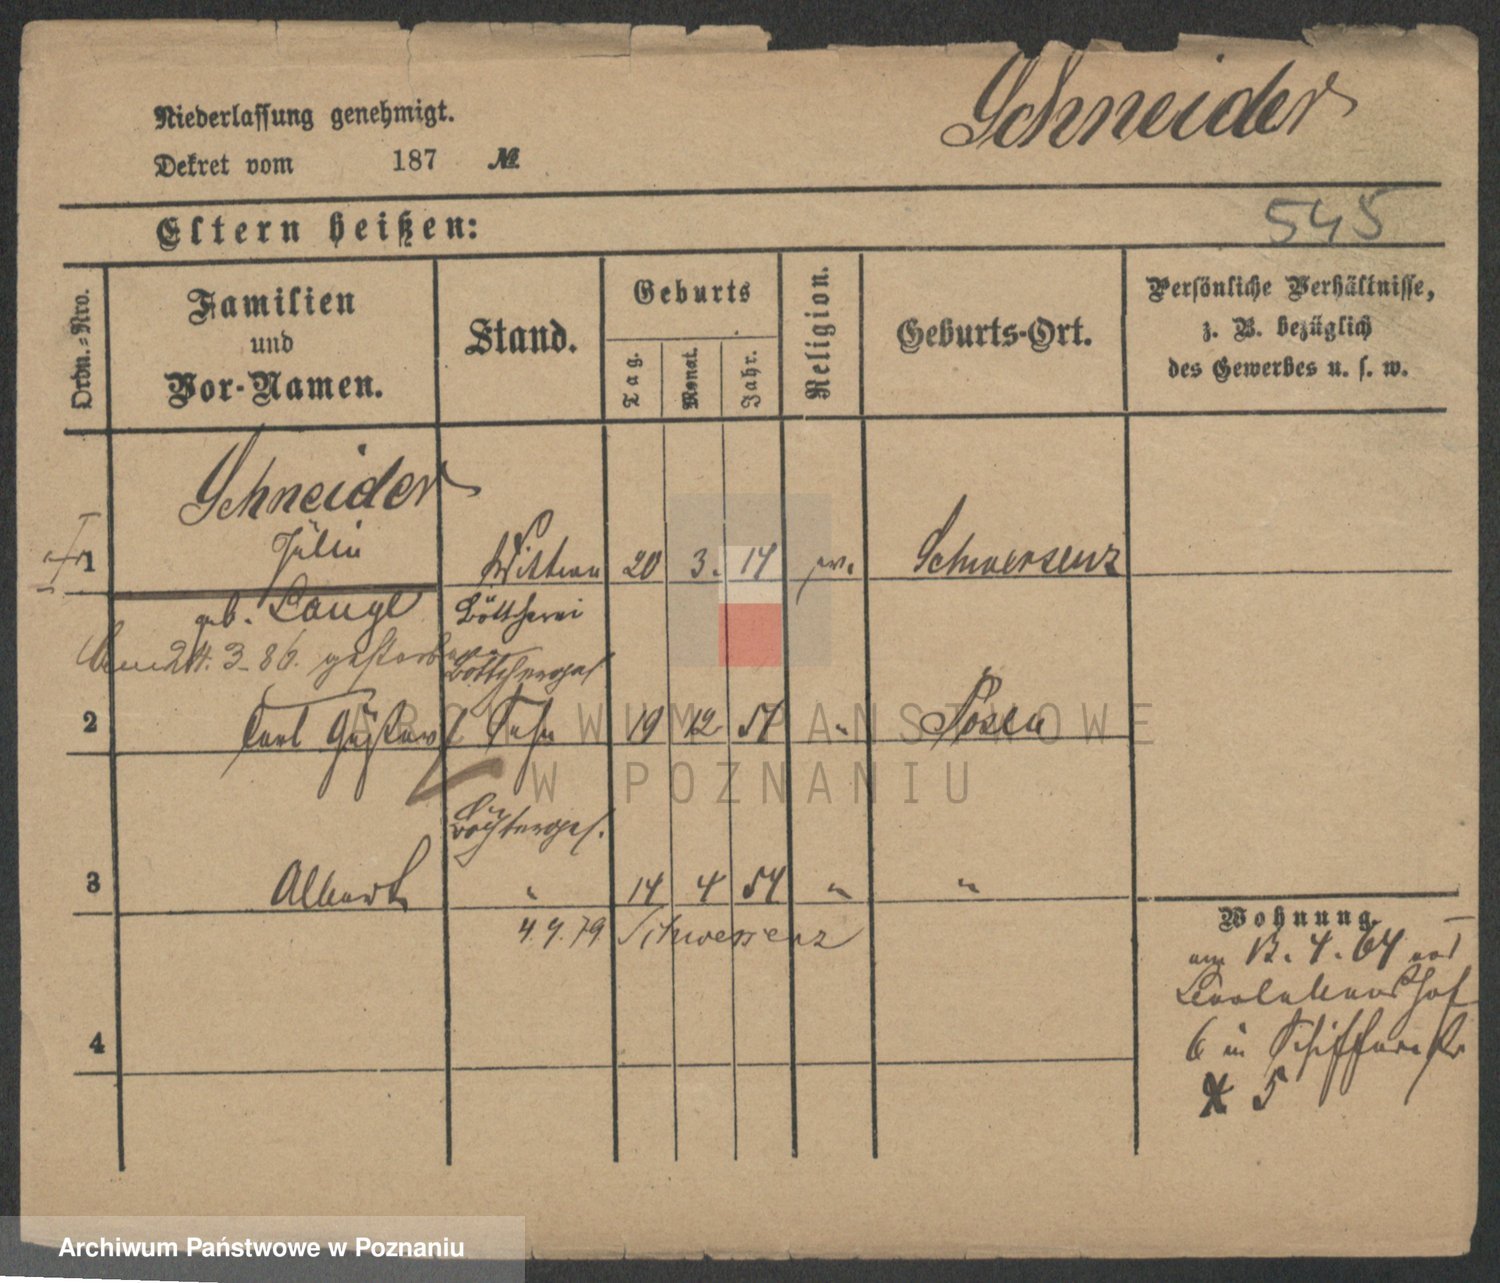 Schneider
Niederlassung genehmigt.
Dekret vom 187 №
545
Eltern heißen:
Ordn.-Nro.
Familien
und
Vor-Namen.
Stand.
Geburts
Tag.
Monat.
Jahr.
Religion.
Geburts-Ort.
Persönliche Verhältnisse,
z. B. bezüglich
des Gewerbes u. s. w.
Schneider
1 Julie Wittwe 20 3. 14 ev. Schwersenz
geb. Lange Böttcherei
Am 24. 3. 86. gestorben
Böttcherges
2 Carl Gustav Sohn 19 12 51 " Posen
3 Albert " 14 4 54 " "
4. 9. 79 Schwersenz
Wohnung
6 in Schifferstr
5
4
ARCHIWUM PAŃSTWOWE
W POZNANIU
Archiwum Państwowe w Poznaniu